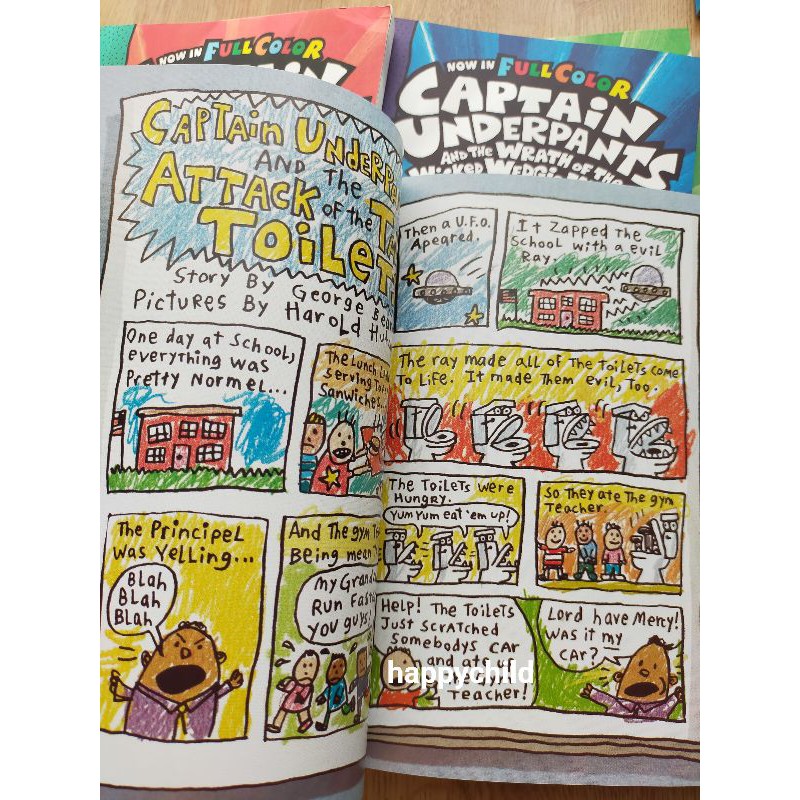 NOW IN FULL COLOR
NOW IN FULL COLOR
CAPTAIN
UNDERPANTS
AND THE WRATH OF THE
WICKED
CAPTAIN
AND THE
ATTACK OF THE
TOILET
Story By George
Pictures By Harold
One day at School,
everything was
Pretty Normel...
The Lunch
serving
Sanwiches
The Principel
was Yelling...
Blah
Blah
Blah
And The gym
Being mean
My
Run
you guys
Then a U.F.O.
Apeared.
It Zapped The
School with a evil
Ray.
The ray made all of The toileTs come
To Life. It made Them evil, Too.
The ToileTs were
Hungry.
Yum Yum eat 'em up!
So They ate The gym
Teacher.
Help! The ToileTs
Just scratched
somebodys car
and ate
Teacher!
Lord have Mercy!
was it my
car?
happychild